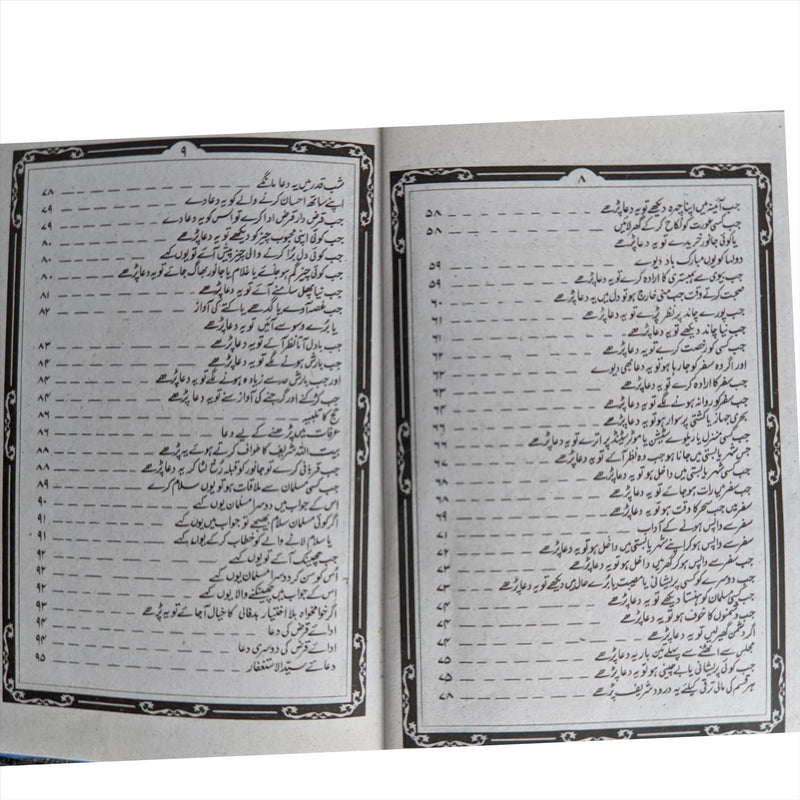 ۸
جب آئینہ میں اپنا چہرہ دیکھے تو یہ دعا پڑھے ۵۸
جب کسی عورت کو نکاح کر کے گھر لائیں ۵۸
یا کوئی جانور خریدے تو یہ دعا پڑھے
دولہا کو یوں مبارک باد دیوے ۵۹
جب بیوی سے ہمبستری کا ارادہ کرے تو یہ دعا پڑھے ۵۹
صحبت کرتے وقت جب منی خارج ہو تو دل میں یہ دعا پڑھے ۶۰
جب پورے چاند پر نظر پڑے تو یہ دعا پڑھے ۶۱
جب نیا چاند دیکھے تو یہ دعا پڑھے ۶۱
جب کسی کو رخصت کرے تو یہ دعا پڑھے
اور اگر وہ سفر کو جا رہا ہو تو یہ دعا بھی دیوے
جب سفر کا ارادہ کرے تو یہ دعا پڑھے
جب سفر کو روانہ ہونے لگے تو یہ دعا پڑھے
بحری جہاز یا کشتی پر سوار ہو تو یہ دعا پڑھے
جب کسی منزل یا ریلوے سٹیشن یا موٹر سٹینڈ پر اترے تو یہ دعا پڑھے
جس شہر یا بستی میں جانا ہو جب وہ نظر آئے تو یہ دعا پڑھے
جب کسی شہر یا بستی میں داخل ہو تو یہ دعا پڑھے
جب سفر میں رات ہو جائے تو یہ دعا پڑھے ۶۸
جب سفر میں جب سحر کا وقت ہو تو یہ دعا پڑھے
سفر سے واپس ہونے کے آداب ۶۹
سفر سے واپس ہو کر اپنے شہر یا بستی میں داخل ہو تو یہ دعا پڑھے ۷۱
جب سفر سے واپس ہو کر گھر میں داخل ہو تو یہ دعا پڑھے ۷۲
جب دوسرے کو کسی پریشانی یا مصیبت یا برے حال میں دیکھے تو یہ دعا پڑھے ۷۳
جب کسی مسلمان کو ہنستا دیکھے تو یہ دعا پڑھے ۷۴
جب دشمنوں کا خوف ہو تو یہ دعا پڑھے
اگر دشمن گھیر لیں تو یہ دعا پڑھے ۷۴
مجلس سے اٹھنے سے پہلے تین بار یہ دعا پڑھے ۷۵
جب کوئی پریشانی یا بے چینی ہو تو یہ دعا پڑھے ۷۵
ہر قسم کی مالی ترقی کیلئے یہ درود شریف پڑھے ۷۸
۹
شب قدر میں یہ دعا مانگے ۷۸
اپنے ساتھ احسان کرنے والے کو یہ دعا دے ۷۹
جب قرض دار قرض ادا کرے تو اس کو یہ دعا دے ۷۹
جب کوئی اپنی محبوب چیز کو دیکھے تو یہ دعا پڑھے ۸۰
جب کوئی دل برا کرنے والی چیز پیش آئے تو یوں کہے ۸۰
جب کوئی چیز گم ہو جائے یا غلام یا جانور بھاگ جائے تو یہ دعا پڑھے ۸۰
جب نیا پھل سامنے آئے تو یہ دعا پڑھے ۸۱
جب غصہ آوے یا گدھے یا کتے کی آواز ۸۲
یا برے وسوسے آئیں تو یہ دعا پڑھے
جب بادل آتا نظر آئے تو یہ دعا پڑھے ۸۳
جب بارش ہونے لگے تو یہ دعا پڑھے ۸۴
اور جب بارش حد سے زیادہ ہونے لگے تو یہ دعا پڑھے ۸۴
جب کڑکنے اور گرجنے کی آواز سنے تو یہ دعا پڑھے ۸۴
حج کا تلبیہ ۸۶
عرفات میں پڑھنے کے لیے دعا ۸۶
بیت اللہ شریف کا طواف کرتے ہوئے یہ پڑھے ۸۸
جب قربانی کرے تو جانور کو قبلہ رخ لٹا کر یہ دعا پڑھے ۸۸
جب کسی مسلمان سے ملاقات ہو تو یوں سلام کرے ۸۹
اس کے جواب میں دوسرا مسلمان یوں کہے ۹۰
اگر کوئی مسلمان سلام بھیجے تو جواب میں یوں کہے ۹۱
یا سلام لانے والے کو خطاب کر کے یوں کہے ۹۱
جب چھینک آئے تو یوں کہے ۹۲
اس کو سن کر دوسرا مسلمان یوں کہے ۹۲
اس کے جواب میں چھینکنے والا یوں کہے ۹۲
اگر خواہ مخواہ بلا اختیار بدفالی کا خیال آ جائے تو یہ پڑھے ۹۳
ادائے قرض کی دعا ۹۴
ادائے قرض کی دوسری دعا ۹۴
دعائے سید الاستغفار ۹۵